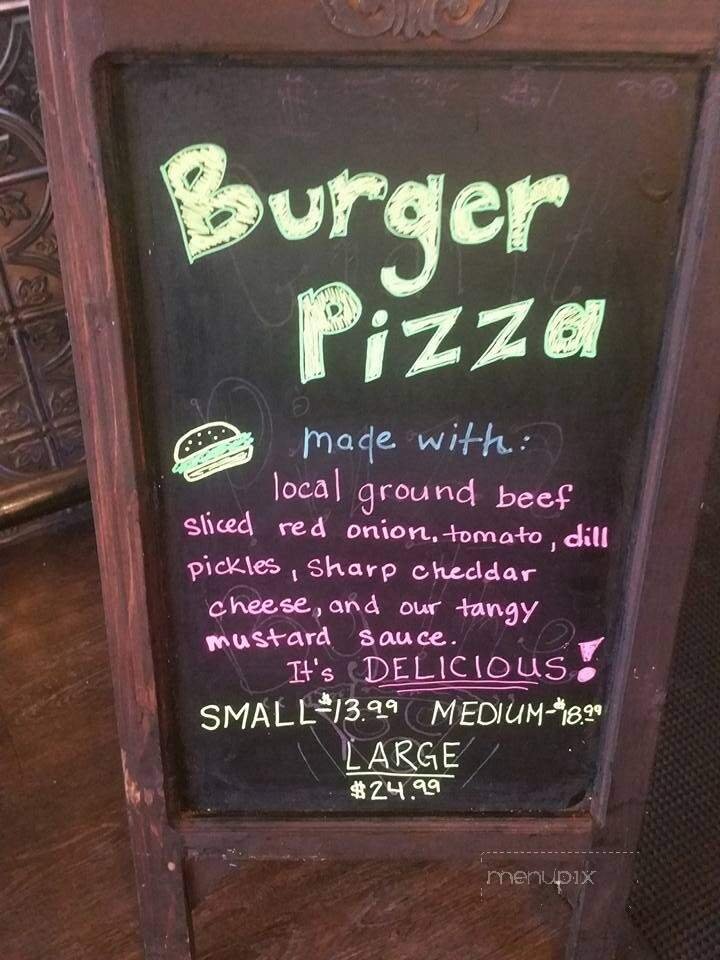 Burger
Pizza
made with:
local ground beef
sliced red onion, tomato, dill
pickles, sharp cheddar
cheese, and our tangy
mustard sauce.
It's DELICIOUS!
SMALL-$13.99 MEDIUM-$18.99
LARGE
$24.99
menupix